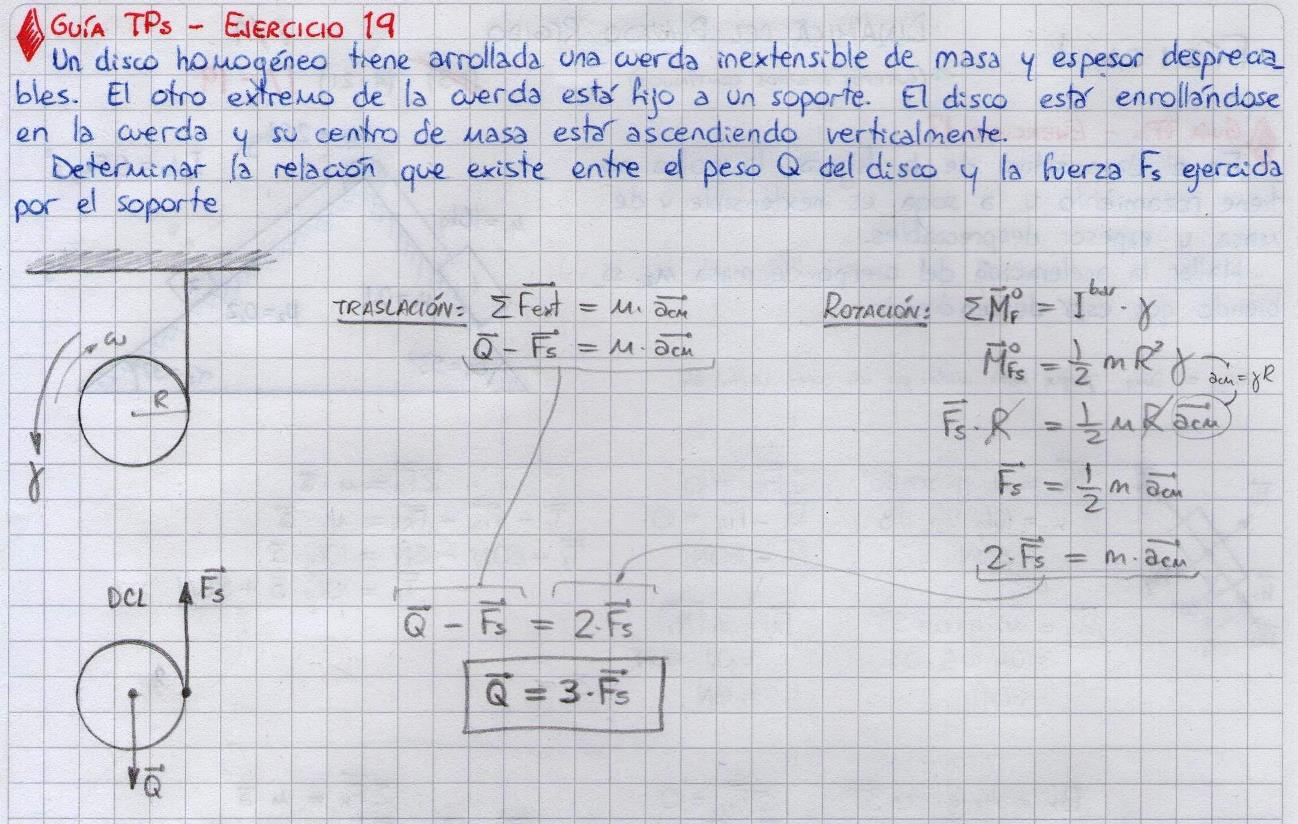 GUÍA TPs - EJERCICIO 19
Un disco homogéneo tiene arrollada una cuerda inextensible de masa y espesor desprecia_
bles. El otro extremo de la cuerda está fijo a un soporte. El disco está enrollándose
en la cuerda y su centro de masa está ascendiendo verticalmente.
Determinar la relación que existe entre el peso Q del disco y la fuerza Fs ejercida
por el soporte
TRASLACIÓN: Σ F⃗ext = m · a⃗cm
Q⃗ - F⃗s = m · a⃗cm
ROTACIÓN: Σ M⃗F° = I^bar · γ
M⃗Fs° = 1/2 m R² γ
acm = γR
F⃗s · R = 1/2 m R a⃗cm
F⃗s = 1/2 m a⃗cm
2 · F⃗s = m · a⃗cm
ω
R
γ
DCL F⃗s
Q⃗
Q⃗ - F⃗s = 2 · F⃗s
Q⃗ = 3 · F⃗s